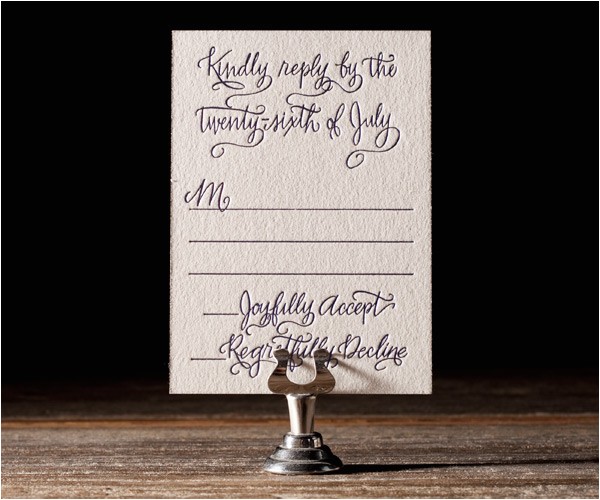 Kindly reply by the
Twenty-sixth of July
M
Joyfully Accept
Regretfully Decline